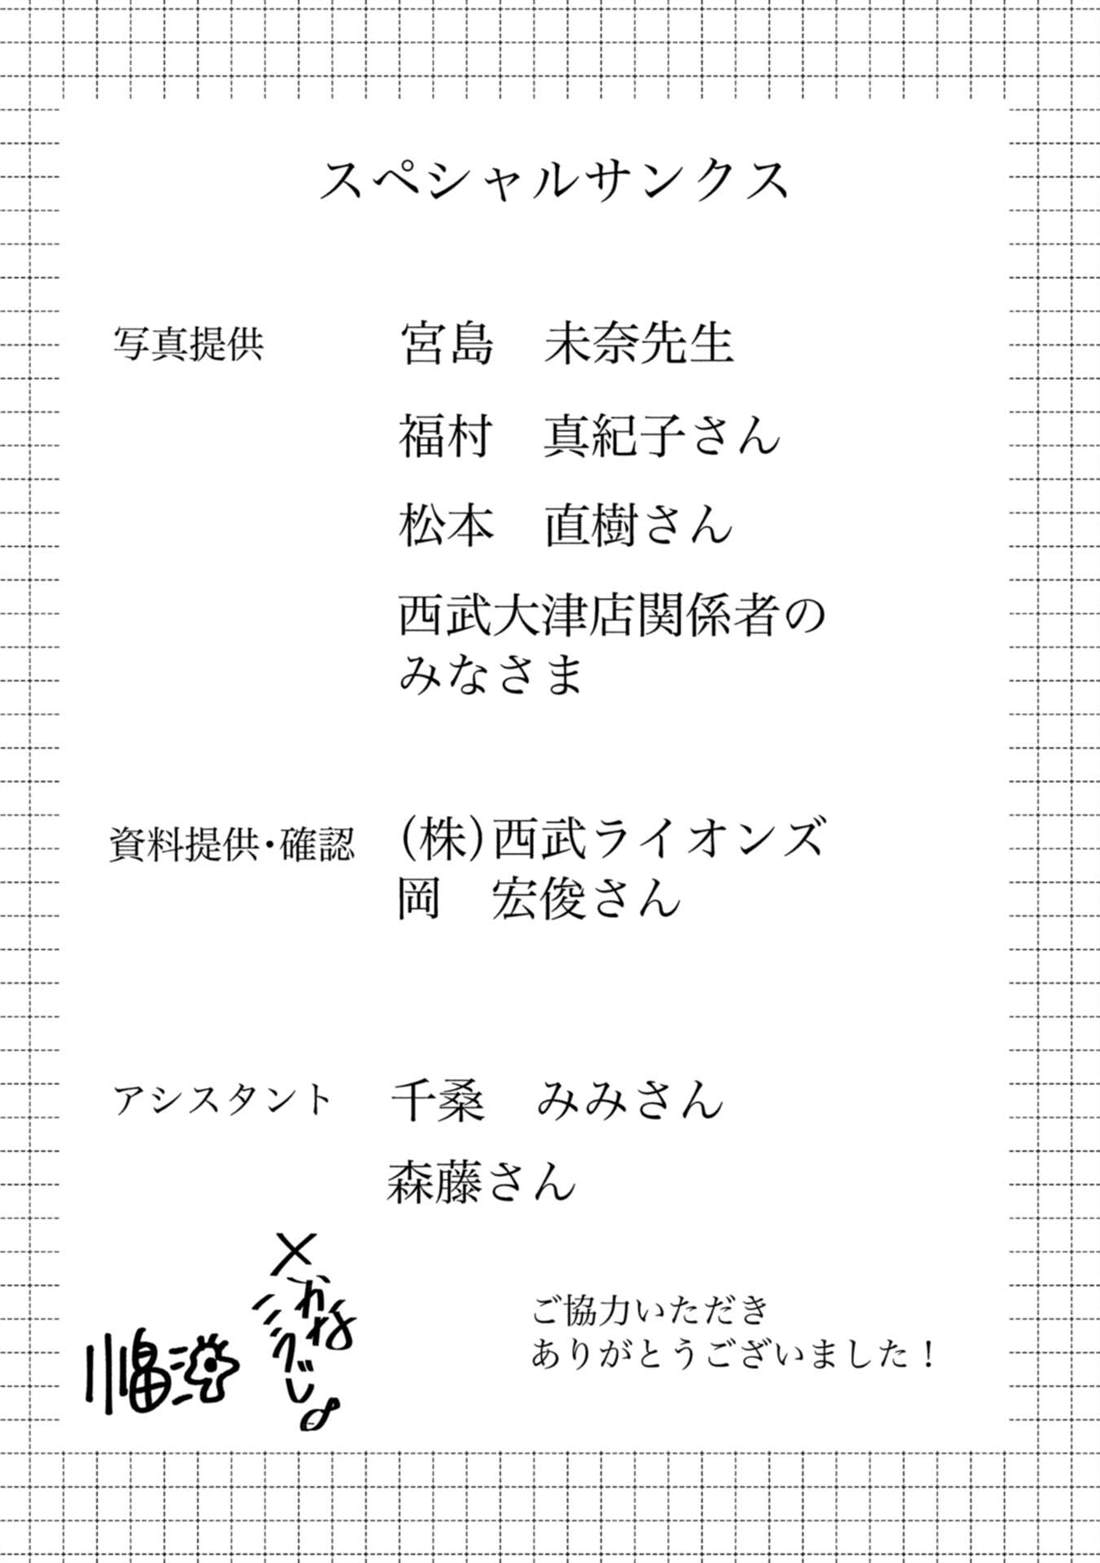 スペシャルサンクス
写真提供 宮島 未奈先生
福村 真紀子さん
松本 直樹さん
西武大津店関係者の
みなさま
資料提供・確認 (株)西武ライオンズ
岡 宏俊さん
アシスタント 千桑 みみさん
森藤さん
ご協力いただき
ありがとうございました!